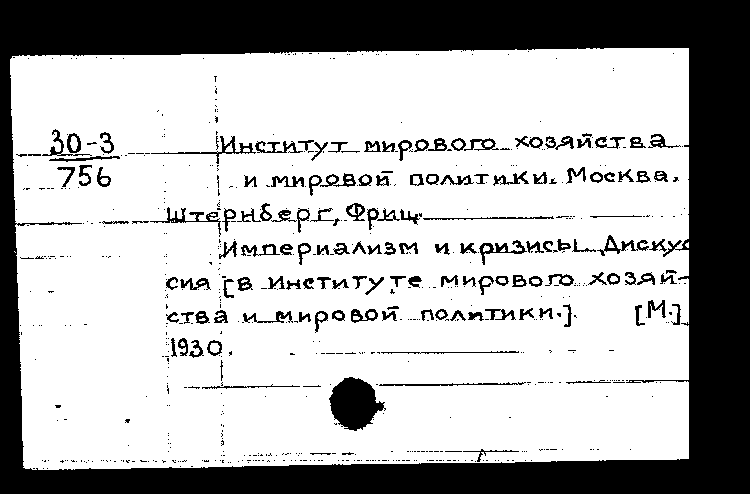 30-3
756
Институт мирового хозяйства
и мировой политики. Москва.
Штернберг, Фриц.
Империализм и кризисы. Дискус
сия [в Институте мирового хозяй-
ства и мировой политики.] [М.]
1930.